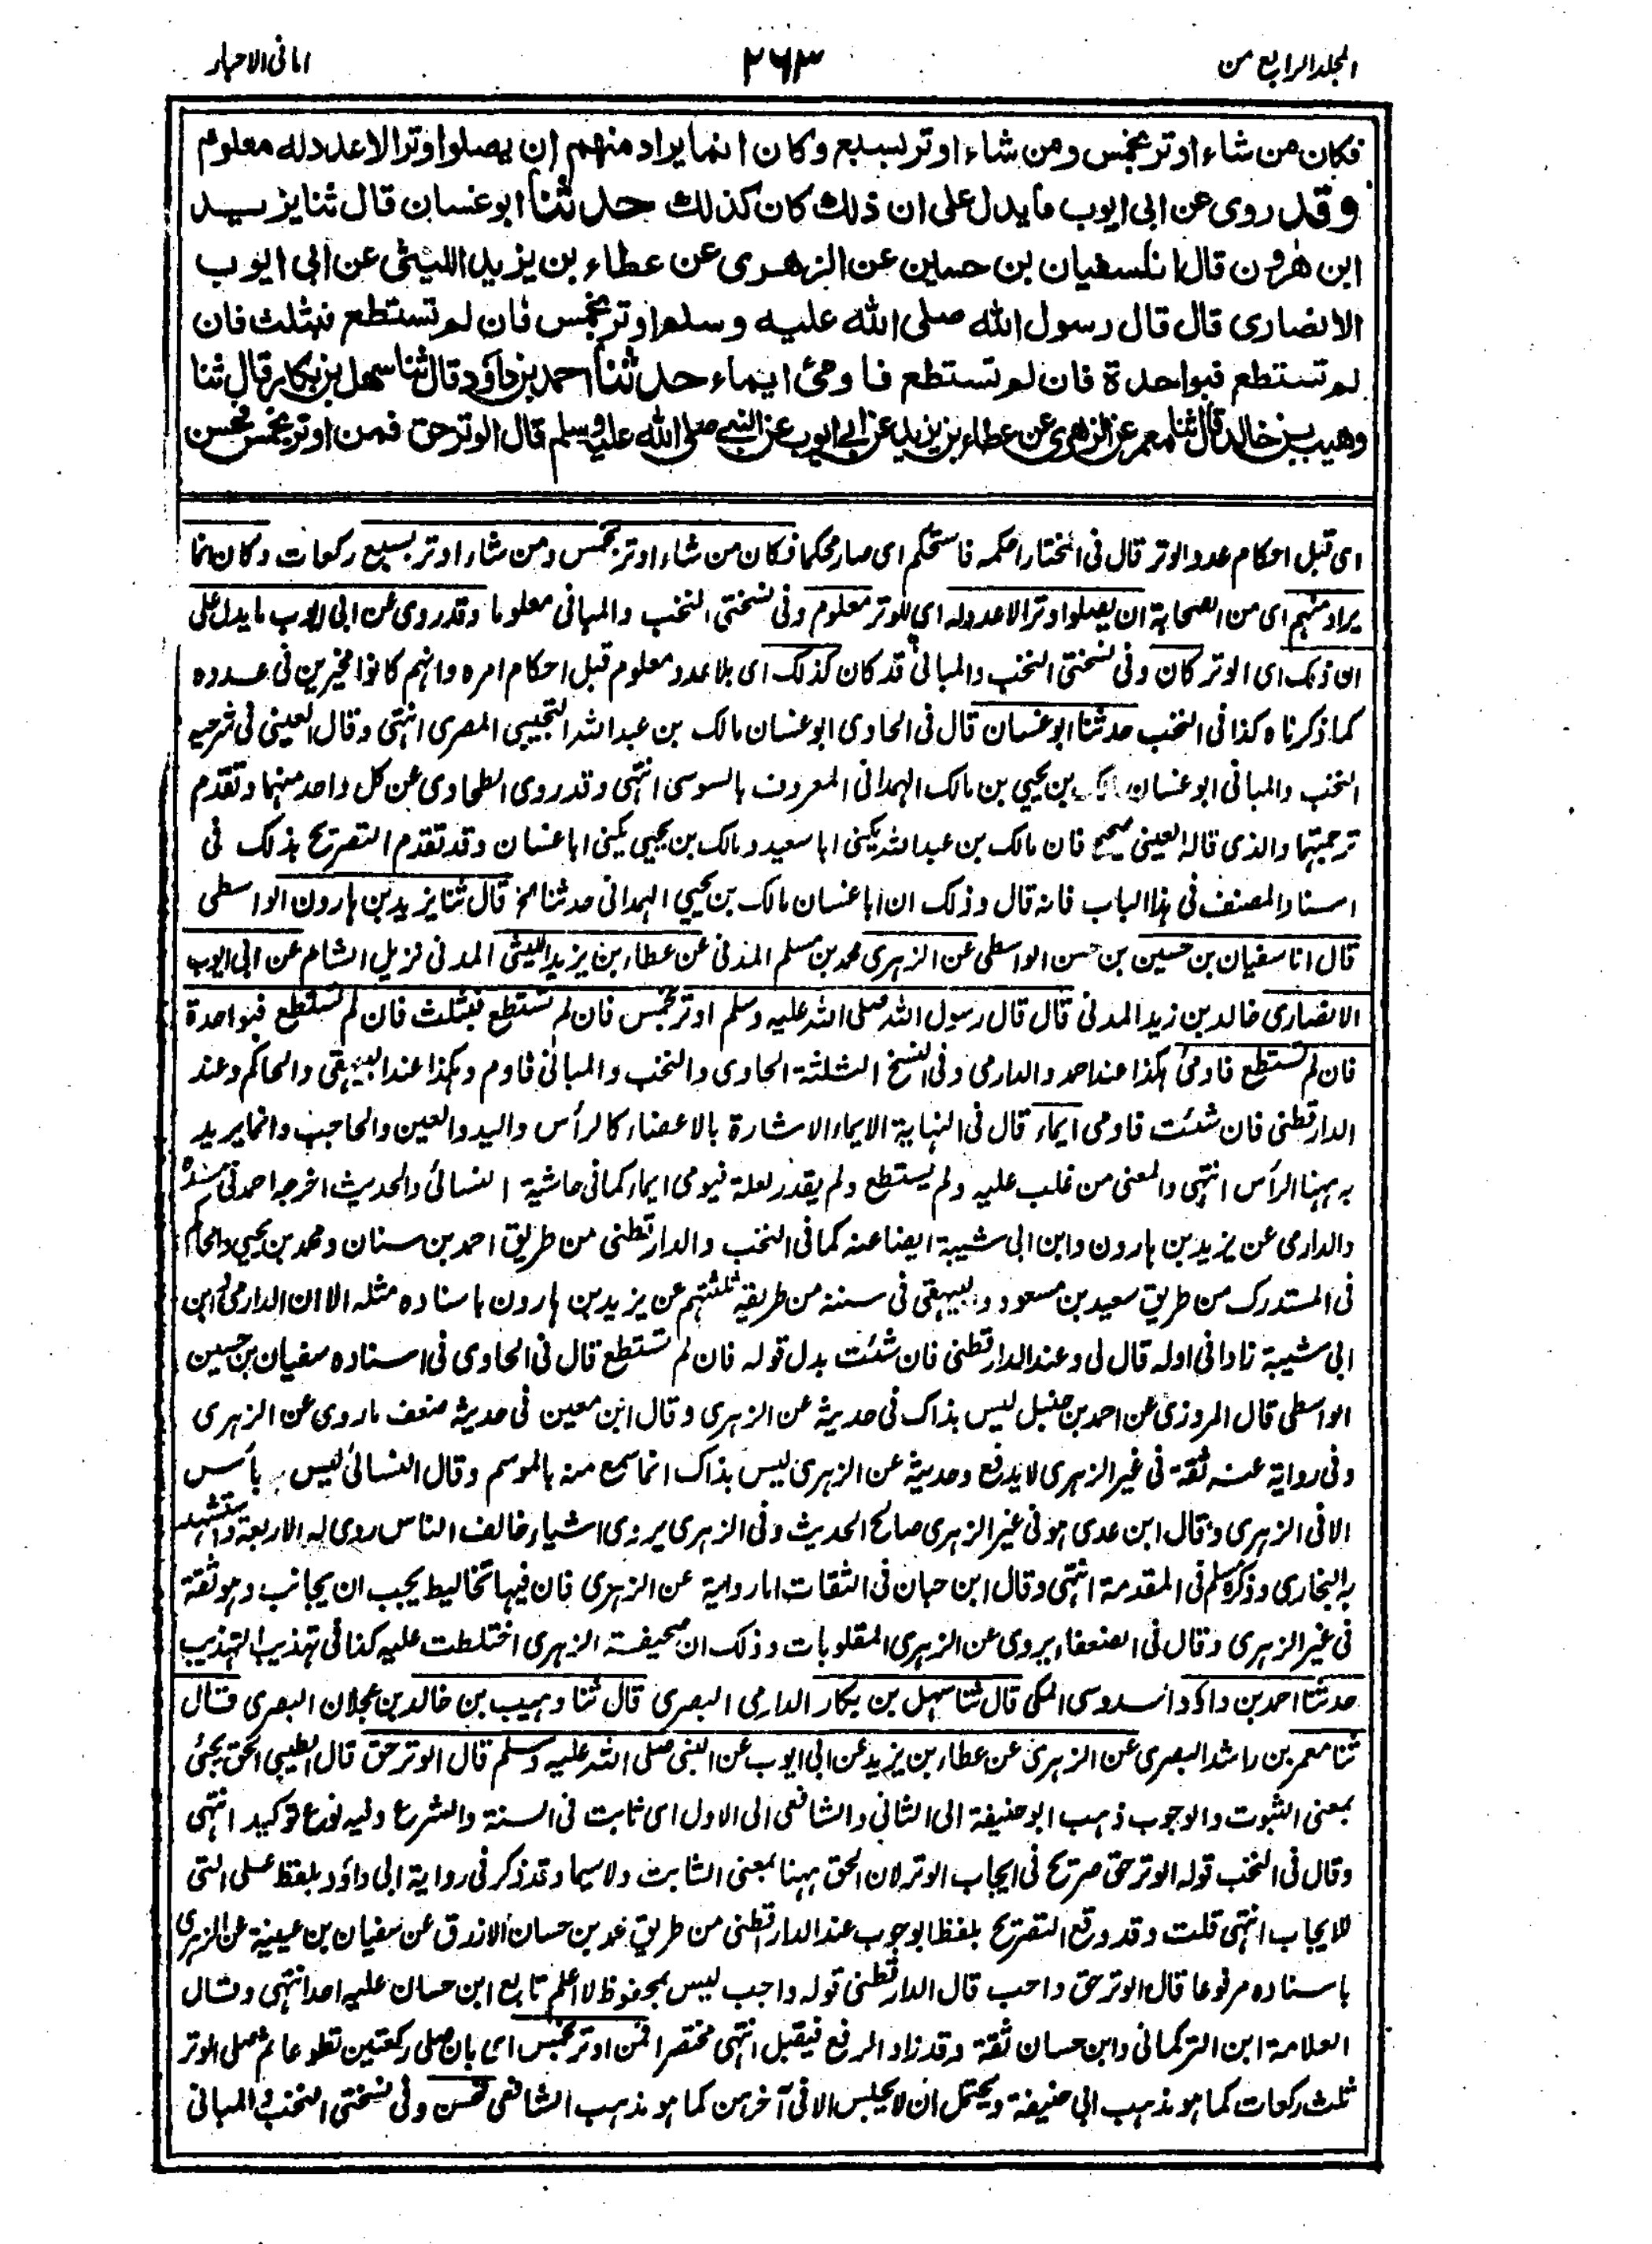 المجلد الرابع من
٢٦٣
امانی الاحبار
فکان من شاء اوتر بخمس ومن شاء اوتر بسبع وکان انما یراد منهم ان یصلوا وترا لا عدد له معلوم
وقد روی عن ابی ایوب ما یدل علی ان ذلك کان کذلك حدثنا ابو غسان قال ثنا یزید
ابن هرون قال انا سفیان بن حسین عن الزهری عن عطاء بن یزید اللیثی عن ابی ایوب
الانصاری قال قال رسول الله صلی الله علیه وسلم اوتر بخمس فان لم تستطع فبثلث فان
لم تستطع فبواحدة فان لم تستطع فاومئ ایماء حدثنا احمد بن داؤد قال ثنا سهل بن بکار قال ثنا
وهیب بن خالد قال ثنا معمر عن الزهری عن عطاء بن یزید عن ابی ایوب عن النبی صلی الله علیه وسلم قال الوتر حق فمن اوتر بخمس فحسن
ای قبل احکام عدد الوتر قال فی المختار احکمه فاستحکم ای صار محکما فکان من شاء اوتر بخمس ومن شاء اوتر بسبع رکعات وکان انما
یراد منهم ای من الصحابة ان یصلوا وترا لا عدد له ای للوتر معلوم وفی نسختی النخب والمبانی معلوما وقد روی عن ابی ایوب ما یدل علی
ان ذلک ای الوتر کان وفی نسختی النخب والمبانی قد کان کذلک ای بلا عدد معلوم قبل احکام امره وانهم کانوا مخیرین فی عدده
کما ذکرناه کذا فی النخب حدثنا ابو غسان قال فی الحاوی ابو غسان مالک بن عبد الله التجیبی المصری انتهی وقال العینی فی شرحیه
النخب والمبانی ابو غسان مالک بن یحیی بن مالک الهمدانی المعروف بالسوسی انتهی وقد روی الطحاوی عن کل واحد منهما وتقدم
ترجمتهما والذی قاله العینی صحیح فان مالک بن عبد الله یکنی ابا سعید ومالک بن یحیی یکنی ابا غسان وقد تقدم التصریح بذلک فی
اسناد المصنف فی هذا الباب فانه قال وذلک ان ابا غسان مالک بن یحیی الهمدانی حدثنا الخ قال ثنا یزید بن هارون الواسطی
قال انا سفیان بن حسین بن حسن الواسطی عن الزهری محمد بن مسلم المدنی عن عطاء بن یزید اللیثی المدنی نزیل الشام عن ابی ایوب
الانصاری خالد بن زید المدنی قال قال رسول الله صلی الله علیه وسلم اوتر بخمس فان لم تستطع فبثلث فان لم تستطع فبواحدة
فان لم تستطع فاومئ هکذا عند احمد والدارمی وفی النسخ الثلثة الحاوی والنخب والمبانی فاوم وهکذا عند البیهقی والحاکم وعند
الدارقطنی فان شئت فاومی ایماء قال فی النهایة الایماء الاشارة بالاعضاء کالرأس والید والعین والحاجب وانما یرید
به ههنا الرأس انتهی والمعنی من غلب علیه ولم یستطع ولم یقدر لعلة فیومی ایماء کما فی حاشیة النسائی والحدیث اخرجه احمد فی مسنده
والدارمی عن یزید بن هارون وابن ابی شیبة ایضا عنه کما فی النخب والدارقطنی من طریق احمد بن سنان ومحمد بن یحیی والحاکم
فی المستدرک من طریق سعید بن مسعود والبیهقی فی سننه من طریقه ثلثتهم عن یزید بن هارون باسناده مثله الا ان الدارمی وابن
ابی شیبة زادا فی اوله قال لی وعند الدارقطنی فان شئت بدل قوله فان لم تستطع قال فی الحاوی فی اسناده سفیان بن حسین
الواسطی قال المروزی عن احمد بن حنبل لیس بذاک فی حدیثه عن الزهری وقال ابن معین فی حدیثه ضعف ما روی عن الزهری
وفی روایة عنه ثقة فی غیر الزهری لا یدفع وحدیثه عن الزهری لیس بذاک انما سمع منه بالموسم وقال النسائی لیس به بأس
الا فی الزهری وقال ابن عدی هو فی غیر الزهری صالح الحدیث وفی الزهری یروی اشیاء خالف الناس روی له الاربعة واستشهد
به البخاری وذکره مسلم فی المقدمة انتهی وقال ابن حبان فی الثقات اما روایة عن الزهری فان فیها تخالیط یجب ان یجانب وهو ثقة
فی غیر الزهری وقال فی الضعفاء یروی عن الزهری المقلوبات وذلک ان صحیفة الزهری اختلطت علیه کذا فی تهذیب التهذیب
حدثنا احمد بن داؤد السدوسی المکی قال ثنا سهل بن بکار الدارمی البصری قال ثنا وهیب بن خالد بن عجلان البصری قال
ثنا معمر بن راشد البصری عن الزهری عن عطاء بن یزید عن ابی ایوب عن النبی صلی الله علیه وسلم قال الوتر حق قال الطیبی الحق یجئ
بمعنی الثبوت والوجوب ذهب ابو حنیفة الی الثانی والشافعی الی الاول ای ثابت فی السنة والشرع وفیه نوع توکید انتهی
وقال فی النخب قوله الوتر حق صریح فی ایجاب الوتر لان الحق ههنا بمعنی الثابت ولا سیما وقد ذکر فی روایة ابی داؤد بلفظ علی التی
للایجاب انتهی قلت وقد وقع التصریح بلفظ الوجوب عند الدارقطنی من طریق محمد بن حسان الازرق عن سفیان بن عیینة عن الزهری
باسناده مرفوعا قال الوتر حق واجب قال الدارقطنی قوله واجب لیس بمحفوظ لا اعلم تابع ابن حسان علیه احد انتهی وقال
العلامة ابن الترکمانی وابن حسان ثقة وقد زاد الرفع فیقبل انتهی مختصرا فمن اوتر بخمس ای بان صلی رکعتین تطوعا ثم صلی الوتر
ثلث رکعات کما هو مذهب ابی حنیفة ویحتمل ان لا یجلس الا فی آخرهن کما هو مذهب الشافعی فحسن وفی نسختی النخب والمبانی